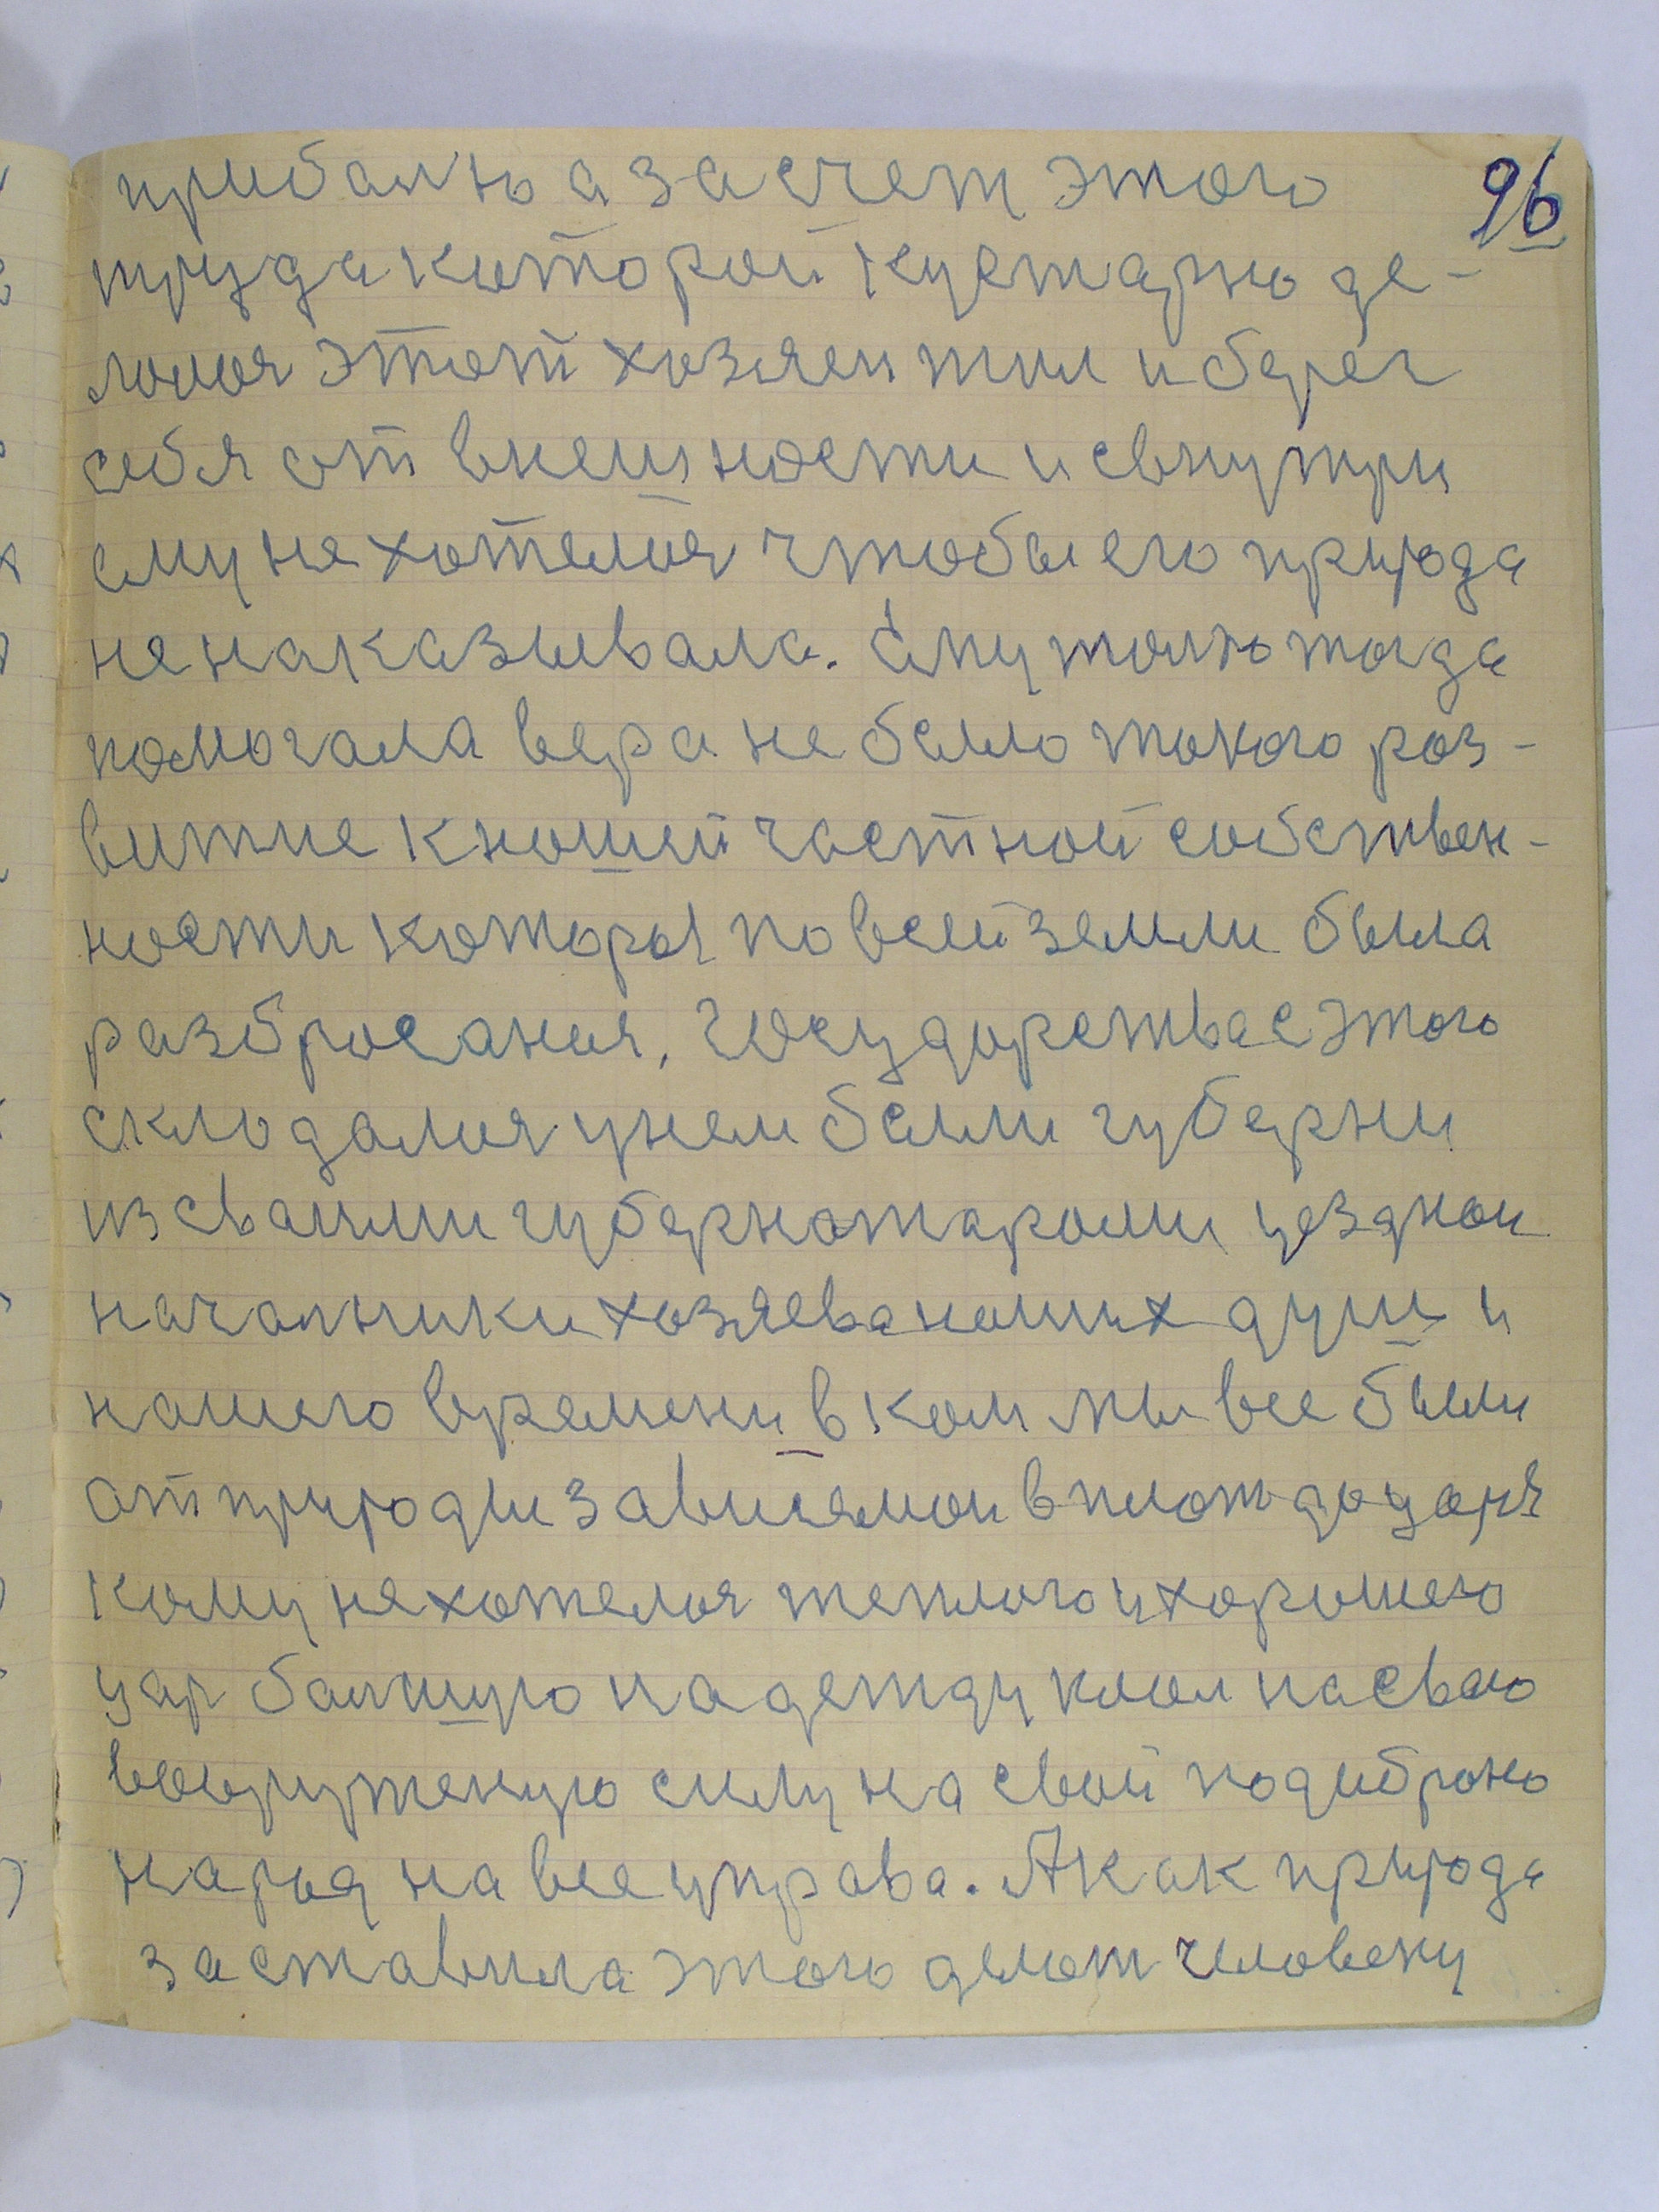 96
прибалю а за счет этого
труда которой кустарно де-
лолоя этот хозяен жил и берег
себя от внешности и свнутри
ему не хотелоя чтобы его природа
не наказывала. Ему толко тогда
помогала вера не было токого роз-
витие к ношей частной собствен-
ности которы по всей земли была
разбросаная, Государства с этого
склодалоя у нем были губерни
из сваими губернатароми уезднои
начальники хозяева наших душ и
нашего времени в ком мы все были
от природы зависямои вплот до царя
кому не хотелоя теплого и хорошего
цар балшую надежду клол на сваю
вооружену силу на свой подоброно
народ на все управа. А как природа
заставила этого делат человеку